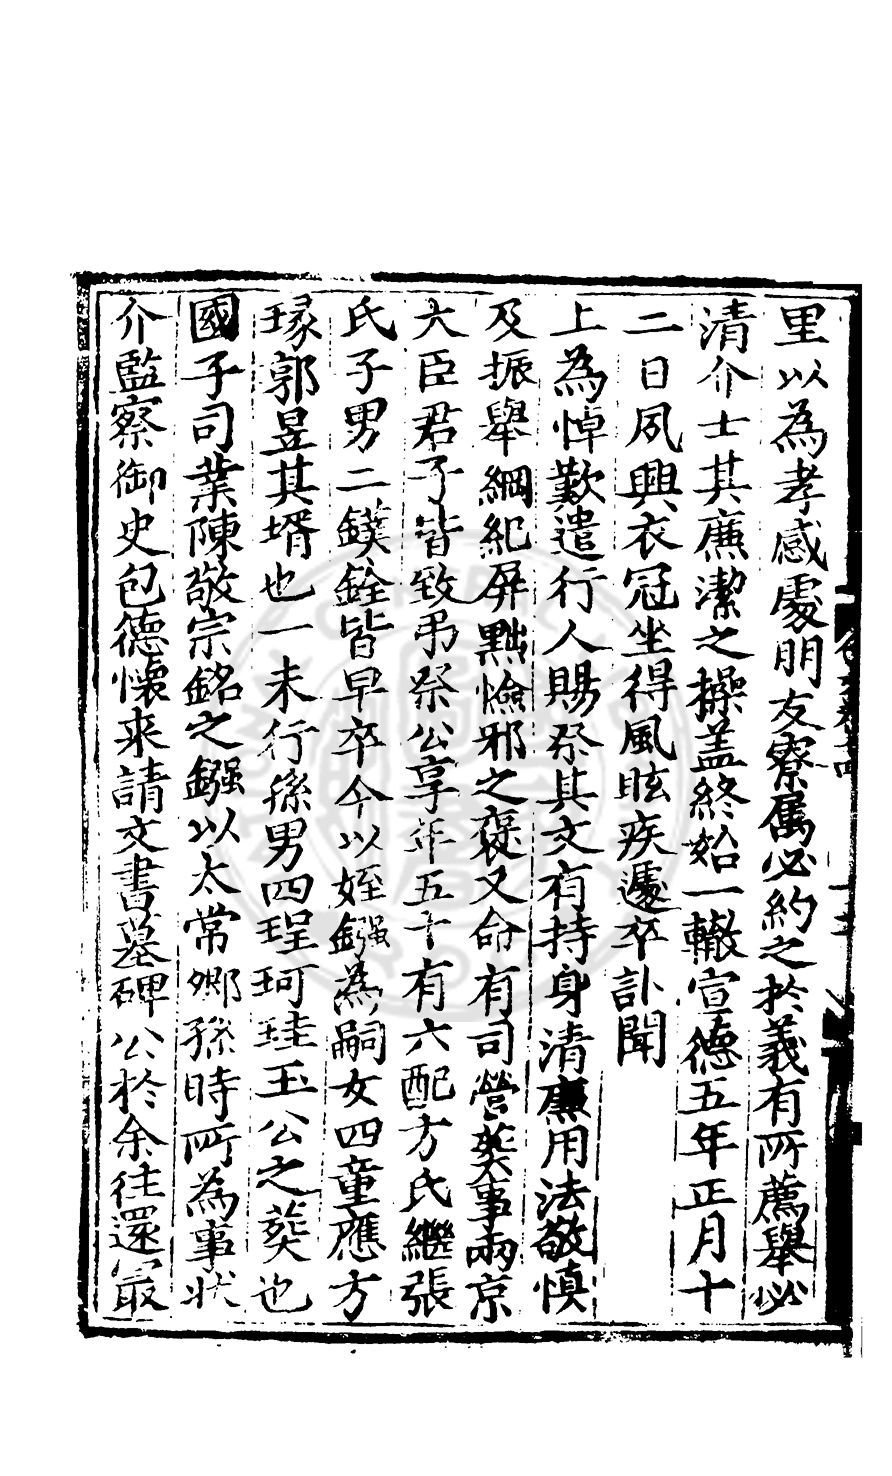 里以為孝感處朋友寮属必約之於義有所薦舉必
清介士其廉潔之操盖終始一轍宣德五年正月十
二日夙興衣冠坐得風眩疾遽卒訃聞
上為悼歎遣行人賜祭其文有持身清廉用法敬慎
及振舉綱紀屏黜憸邪之褒又命有司營葬事兩京
大臣君子皆致弔祭公享年五十有六配方氏繼張
氏子男二鏌銓皆早卒今以姪鏹為嗣女四童應方
瑑郭昱其壻也一未行孫男四珵珂珪玉公之葬也
國子司業陳敬宗銘之鏹以太常鄉孫時所為事狀
介監察御史包德懷来請文書墓碑公於余往還冣